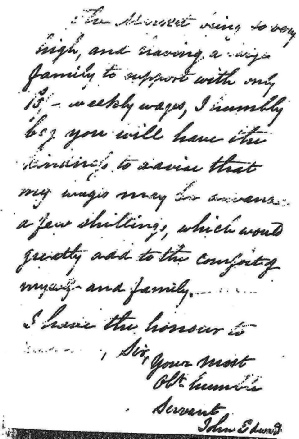 The Market being so very
high, and having a large
family to support with only
15/- weekly wages, I humbly
beg you will have the
kindness to advise that
my wages may be advance
a few shillings, which would
greatly add to the comfort of
myself and family.
I have the honour to
, Sir,
Your most
Obt Humble
Servent,
John Edward